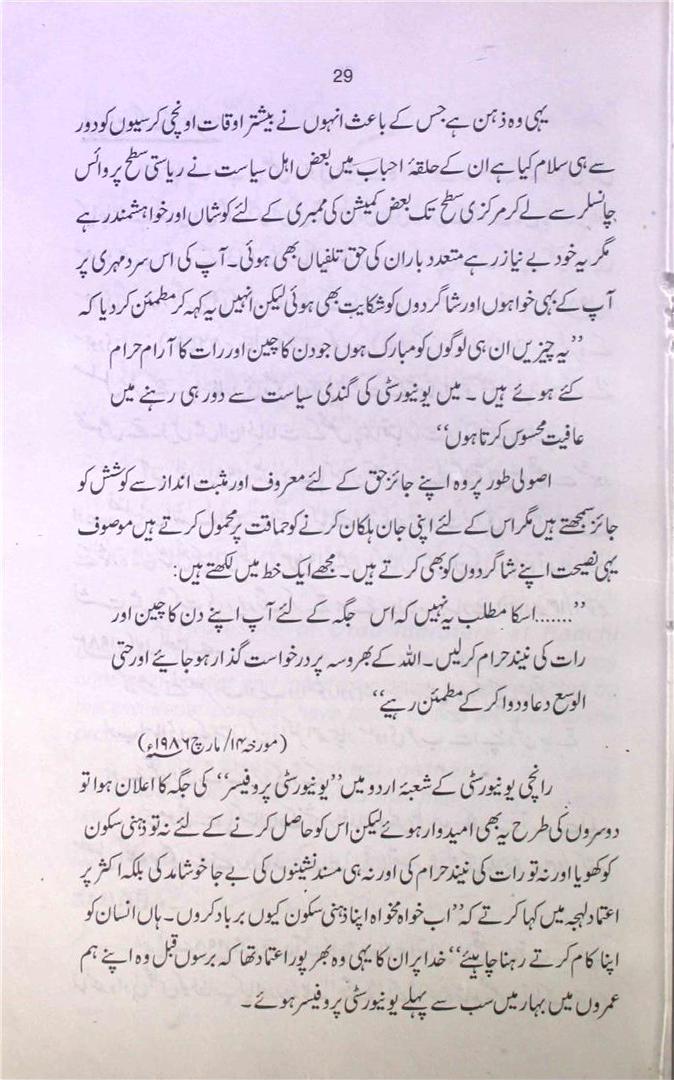 29
یہی وہ ذہن ہے جس کے باعث انہوں نے بیشتر اوقات اونچی کرسیوں کو دور
سے ہی سلام کیا ہے ان کے حلقۂ احباب میں بعض اہل سیاست نے ریاستی سطح پر وائس
چانسلر سے لے کر مرکزی سطح تک بعض کمیشن کی ممبری کے لئے کوشاں اور خواہشمند رہے
مگر یہ خود بے نیاز رہے متعدد بار ان کی حق تلفیاں بھی ہوئی۔ آپ کی اس سرد مہری پر
آپ کے بہی خواہوں اور شاگردوں کو شکایت بھی ہوئی لیکن انہیں یہ کہہ کر مطمئن کر دیا کہ
”یہ چیزیں ان ہی لوگوں کو مبارک ہوں جو دن کا چین اور رات کا آرام حرام
کئے ہوئے ہیں ۔ میں یونیورسٹی کی گندی سیاست سے دور ہی رہنے میں
عافیت محسوس کرتا ہوں“
اصولی طور پر وہ اپنے جائز حق کے لئے معروف اور مثبت انداز سے کوشش کو
جائز سمجھتے ہیں مگر اس کے لئے اپنی جان ہلکان کرنے کو حماقت پر محمول کرتے ہیں موصوف
یہی نصیحت اپنے شاگردوں کو بھی کرتے ہیں۔ مجھے ایک خط میں لکھتے ہیں:
”.......اسکا مطلب یہ نہیں کہ اس جگہ کے لئے آپ اپنے دن کا چین اور
رات کی نیند حرام کر لیں۔ اللہ کے بھروسہ پر درخواست گذار ہو جایئے اور حتی
الوسع دعا و دوا کر کے مطمئن رہیے“
(مورخہ ۱۴/ مارچ ۱۹۸۶ء)
رانچی یونیورسٹی کے شعبۂ اردو میں ”یونیورسٹی پروفیسر“ کی جگہ کا اعلان ہوا تو
دوسروں کی طرح یہ بھی امیدوار ہوئے لیکن اس کو حاصل کرنے کے لئے نہ تو ذہنی سکون
کو کھویا اور نہ تو رات کی نیند حرام کی اور نہ ہی مسند نشینوں کی بے جا خوشامد کی بلکہ اکثر پر
اعتماد لہجہ میں کہا کرتے کہ ”اب خواہ مخواہ اپنا ذہنی سکون کیوں برباد کروں۔ ہاں انسان کو
اپنا کام کرتے رہنا چاہیئے“ خدا پر ان کا یہی وہ بھر پور اعتماد تھا کہ برسوں قبل وہ اپنے ہم
عمروں میں بہار میں سب سے پہلے یونیورسٹی پروفیسر ہوئے۔